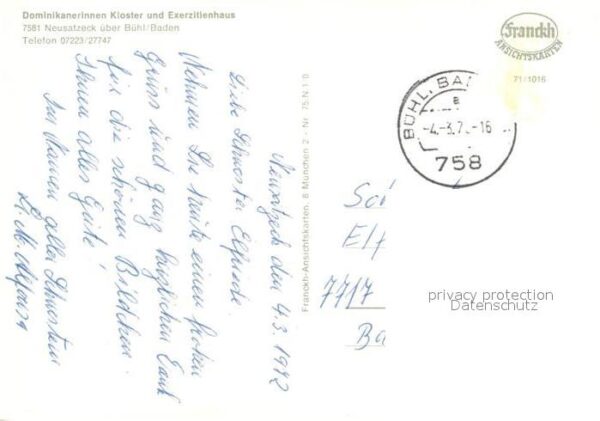 Dominikanerinnen Kloster und Exerzitienhaus
7581 Neusatzeck über Bühl/Baden
Telefon 07223/27747
Franckh
ANSICHTSKARTEN
71/1016
BÜHL, BA
a
-4.-3.7 .-16
758
Neusatzeck den 4.3.1972
Liebe Schwester Elfriede.
Nehmen Sie heute einen frohen
Gruss und ganz herzlichen Dank
für die schönen Bildchen.
Ihnen alles Gute!
Im Namen aller Schwestern
Sr. M. Alfonsa
Franckh-Ansichtskarten, 8 München 2 - Nr. 75 N 1 0
Sch
Elf
7717
Ba
privacy protection
Datenschutz